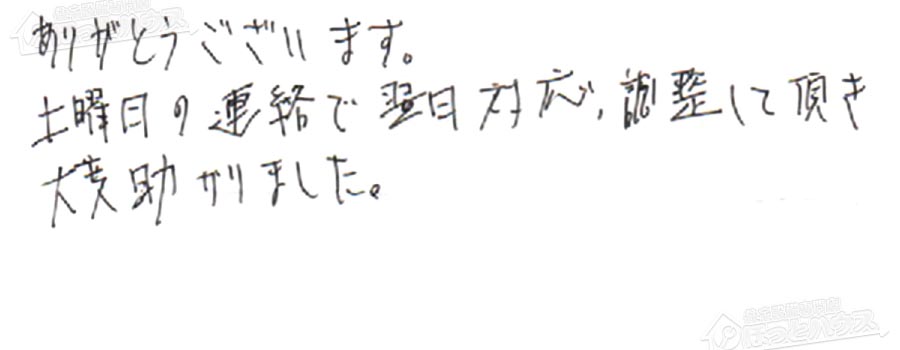 ありがとうございます。
土曜日の連絡で翌日対応、調整して頂き
大変助かりました。
ほっとハウス